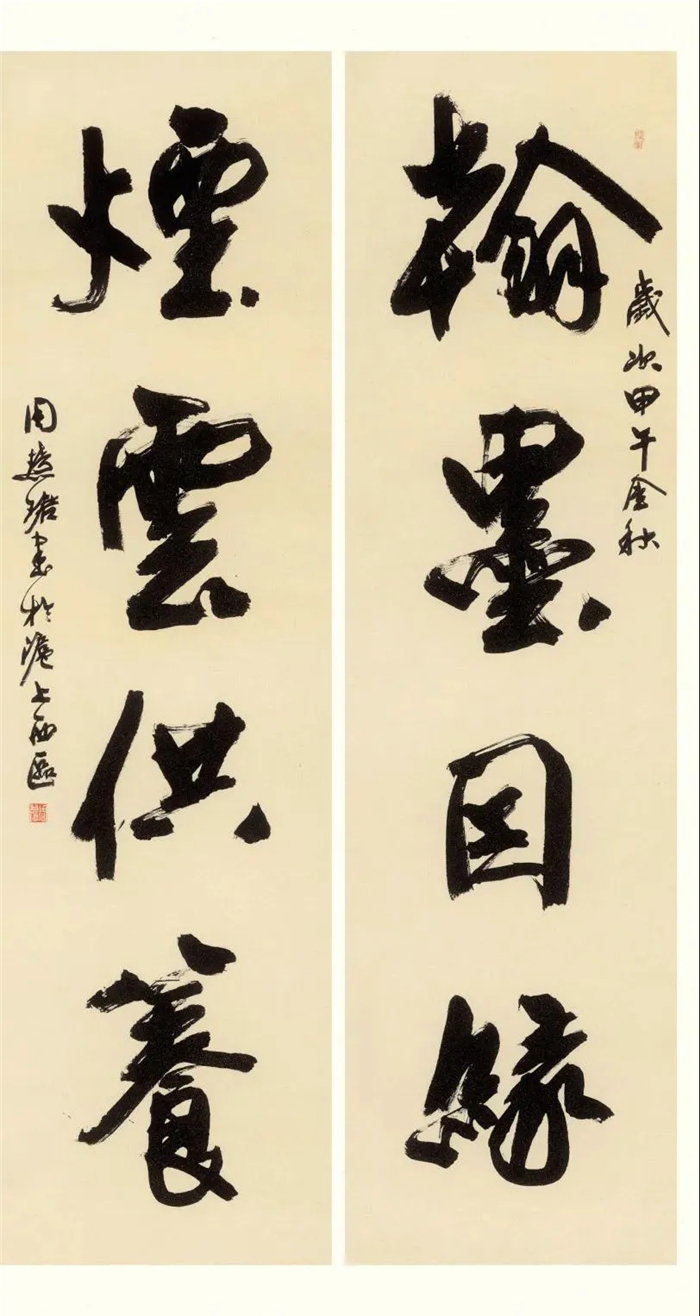 歲次甲午金秋
翰墨因緣
煙雲供養
周慧珺書於滬上西區